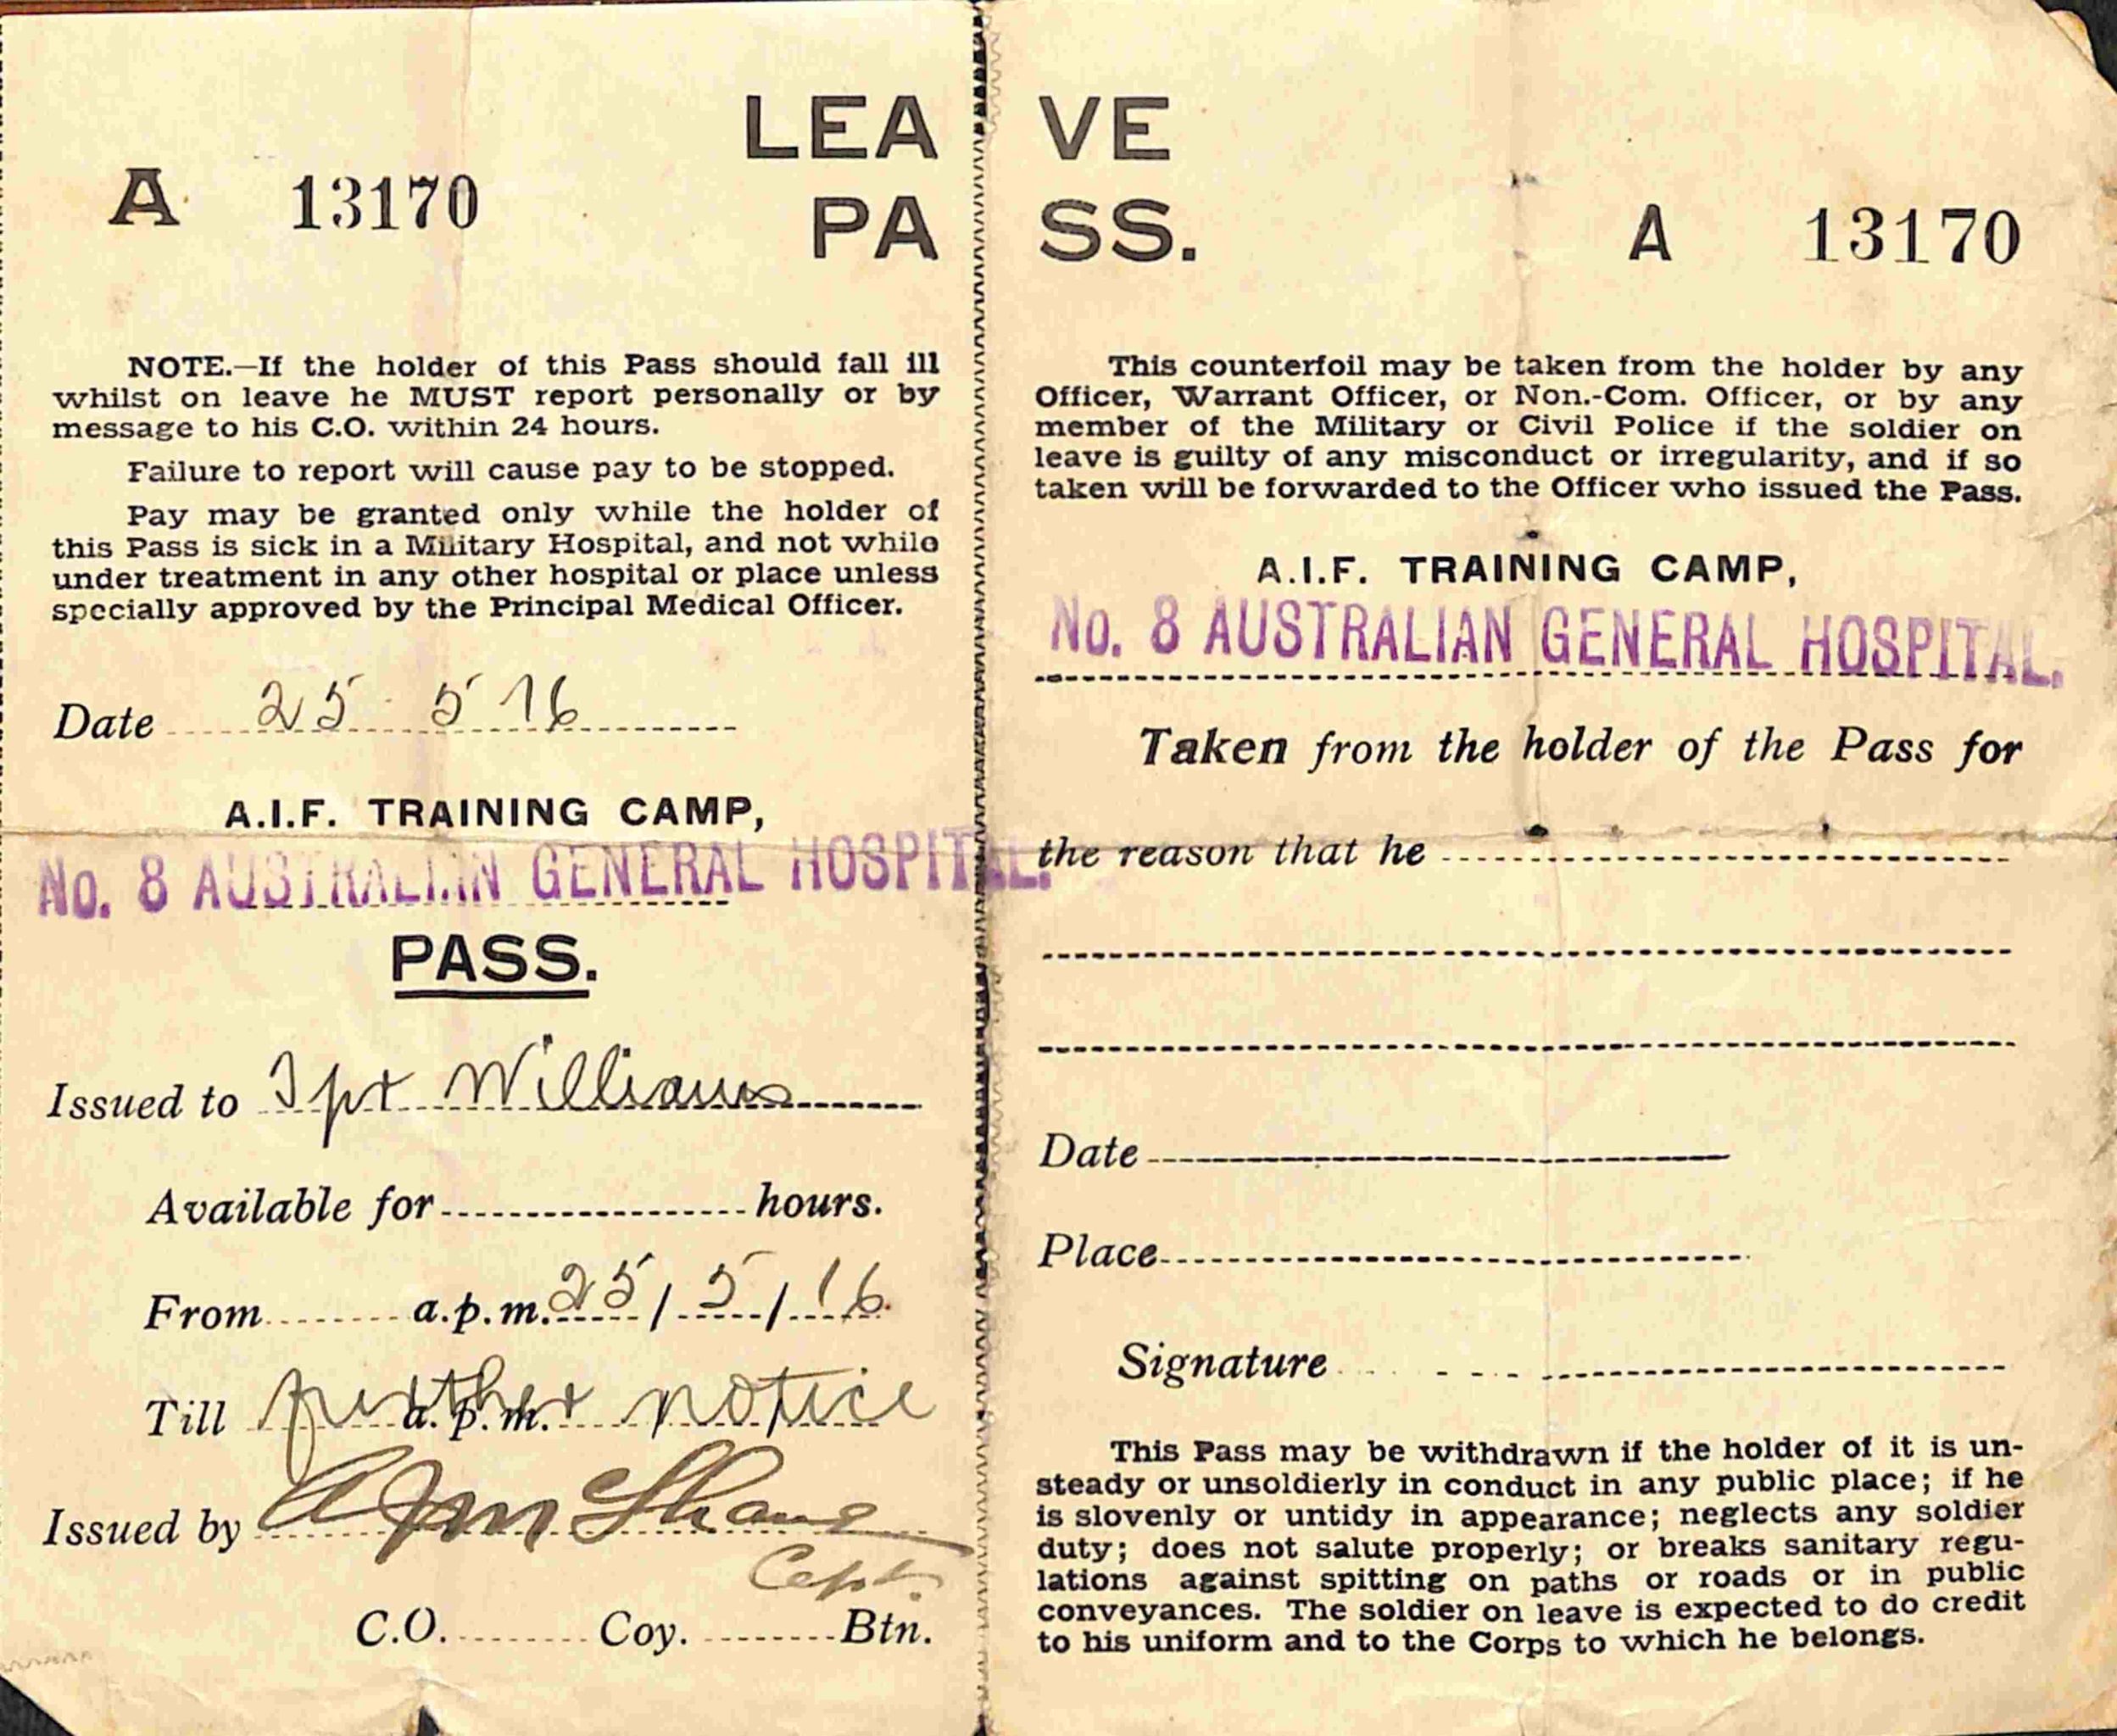 LEAVE
PASS.
A 13170
NOTE.—If the holder of this Pass should fall ill
whilst on leave he MUST report personally or by
message to his C.O. within 24 hours.
Failure to report will cause pay to be stopped.
Pay may be granted only while the holder of
this Pass is sick in a Military Hospital, and not while
under treatment in any other hospital or place unless
specially approved by the Principal Medical Officer.
Date 25 5 16
A.I.F. TRAINING CAMP,
No. 8 AUSTRALIAN GENERAL HOSPITAL.
PASS.
Issued to Williams
Available for hours.
From a.p.m. 25 / 5 / 16
Till further a.p.m. notice
Issued by McShane
Capt.
C.O. Coy. Btn.
A 13170
This counterfoil may be taken from the holder by any
Officer, Warrant Officer, or Non.-Com. Officer, or by any
member of the Military or Civil Police if the soldier on
leave is guilty of any misconduct or irregularity, and if so
taken will be forwarded to the Officer who issued the Pass.
A.I.F. TRAINING CAMP,
No. 8 AUSTRALIAN GENERAL HOSPITAL.
Taken from the holder of the Pass for
the reason that he
Date
Place
Signature
This Pass may be withdrawn if the holder of it is un-
steady or unsoldierly in conduct in any public place; if he
is slovenly or untidy in appearance; neglects any soldier
duty; does not salute properly; or breaks sanitary regu-
lations against spitting on paths or roads or in public
conveyances. The soldier on leave is expected to do credit
to his uniform and to the Corps to which he belongs.